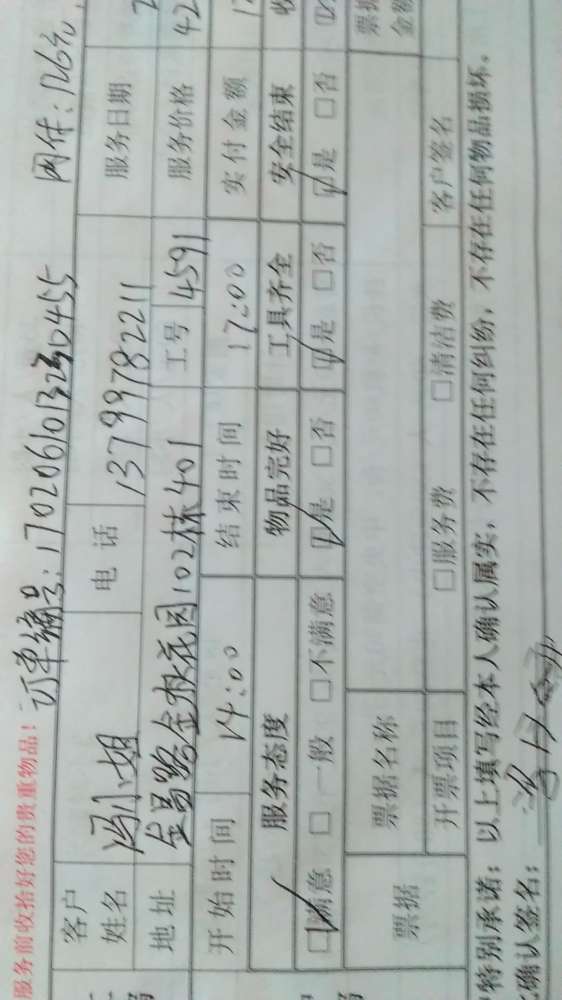 服务前收拾好您的贵重物品！
订单编号：
闲付：126元
客户姓名 冯小姐 电话 13799782211 服务日期
地址 金昌路金枫花园102栋401 工号 4591 服务价格 42
开始时间 14:00 结束时间 17:00 实付金额
服务态度 物品完好 工具齐全 安全结束
☑满意 □一般 □不满意 ☑是 □否 ☑是 □否 ☑是 □否
票据 票据名称 票据金额
开票项目 □服务费 □清洁费 客户签名
特别承诺：以上填写经本人确认属实，不存在任何纠纷，不存在任何物品损坏。
确认签名：